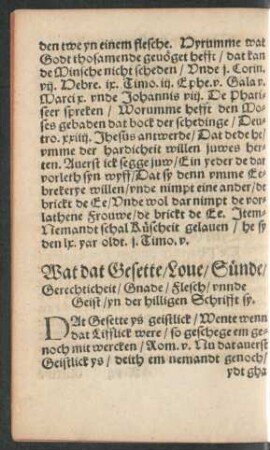 den twe yn einem flesche. Vyrumme wat
Godt thosamende gevöget hefft / dat kan
de Minsche nicht scheden / Vnde j. Corin.
vij. Hebre. ix. Timo. iij. Ephe. v. Gala v.
Marci x. vnde Johannis viij. De Phari-
seer spreken / Worumme hefft den Mo-
ses gebaden dat bock der schedinge / Deu-
tro. xxiiij. Jhesus antwerde / Dat dede he /
vmme der hardicheit willen juwes her-
ten. Auerst ick segge juw / Ein yeder de dar
vorleth syn wyff / Dat sy denn vmme Ee-
brekerye willen / vnde nimpt eine ander / de
brickt de Ee / Vnde wol dar nimpt de vor-
lathene Frouwe / de brickt de Ee. Item-
Nemandt schal Küscheit gelauen / he sy
den lx. yar oldt. j. Timo. v.
Wat dat Gesette / Loue / Sünde /
Gerechticheit / Gnade / Flesch / vnnde
Geist / yn der hilligen Schrifft sy.
DAt Gesette ys geistlick / Wente wenn
dat Lifflick were / so geschege em ge-
noch mit wercken / Rom. v. Nu dat auerst
Geistlick ys / deith em nemandt genoch /
ydt gha